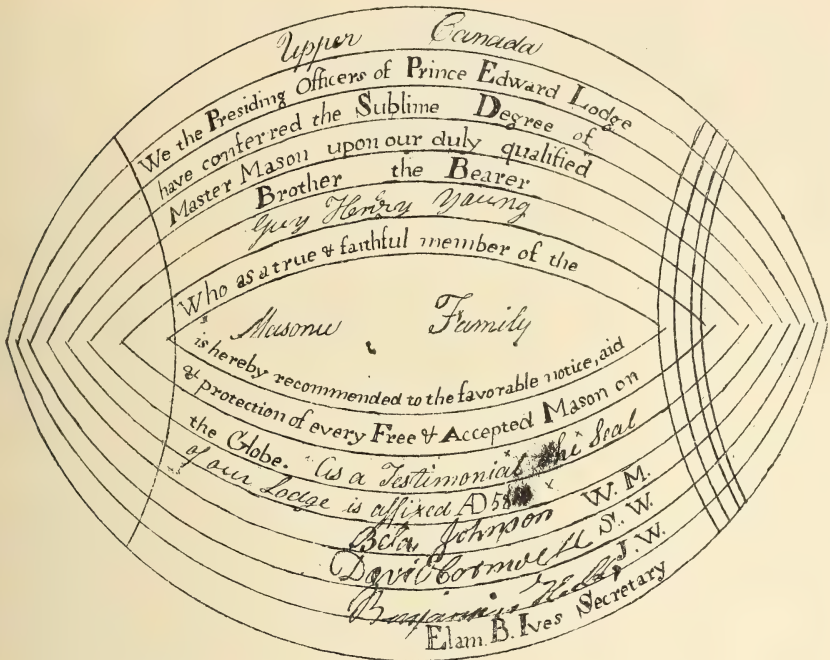 Upper Canada
We the Presiding Officers of Prince Edward Lodge
have conferred the Sublime Degree of
Master Mason upon our duly qualified
Brother the Bearer
Guy Henry Young
Who as a true & faithful member of the
Masonic Family
is hereby recommended to the favorable notice, aid
& protection of every Free & Accepted Mason on
the Globe. As a Testimonial the Seal
of our Lodge is affixed AD 58
Bela Johnson W. M.
David Cornwell S. W.
Benjamin J. W.
Elam. B. Ives Secretary